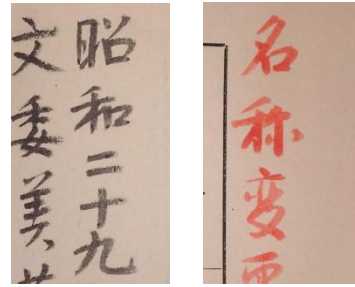 昭和二十九
文委美
名称変更